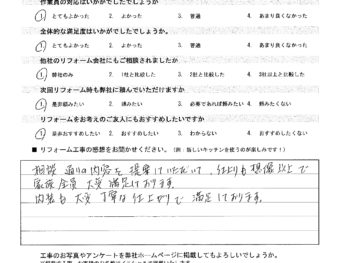 作業員の対応はいかがでしたでしょうか
1. とてもよかった 2. よかった 3. 普通 4. あまり良くなかった
全体的な満足度はいかがでしたでしょうか。
1. とてもよかった 2. よかった 3. 普通 4. あまり良くなかった
他社のリフォーム会社にもご相談されましたか
1. 弊社のみ 2. 1社と比較した 3. 2社と比較した 4. 3社以上と比較した
次回リフォーム時も弊社に頼んでいただけますか
1. 是非頼みたい 2. 頼みたい 3. 必要であれば頼みたい 4. 頼みたくない
リフォームをお考えのご友人にもおすすめしたいですか
1. 是非おすすめしたい 2. おすすめしたい 3. わからない 4. おすすめしたくない
■ リフォーム工事の感想をお聞かせください。(例:新しいキッチンを使うのが楽しみです!)
相談通りの内容を提案していただいて、仕上りも想像以上で
家族全員大変満足しております。
内装も大変丁寧な仕上がりで満足しております。
工事のお写真やアンケートを弊社ホームページに掲載してもよろしいでしょうか。